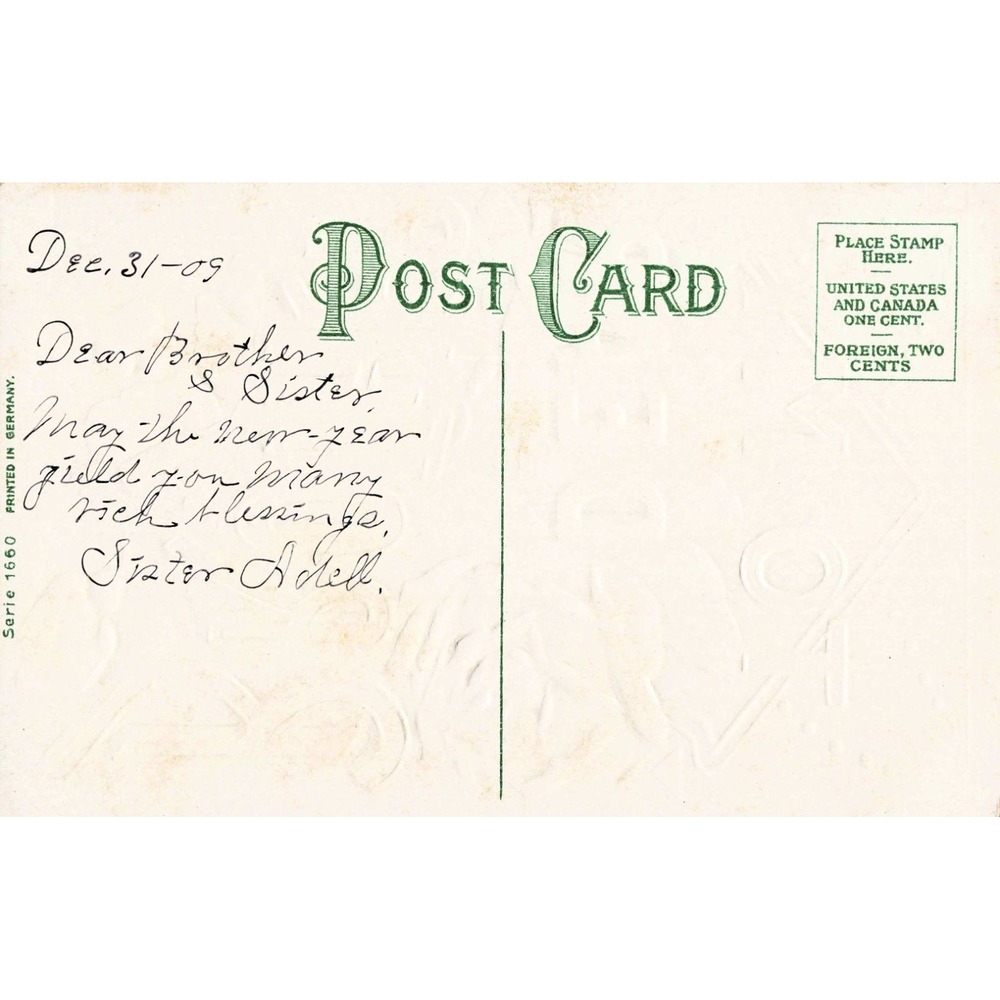 POST CARD
PLACE STAMP
HERE.
UNITED STATES
AND CANADA
ONE CENT.
FOREIGN, TWO
CENTS
Dec. 31-09
Dear Brother
& Sister,
May the new-year
yield you many
rich blessings.
Sister Adell.
Serie 1660 PRINTED IN GERMANY.